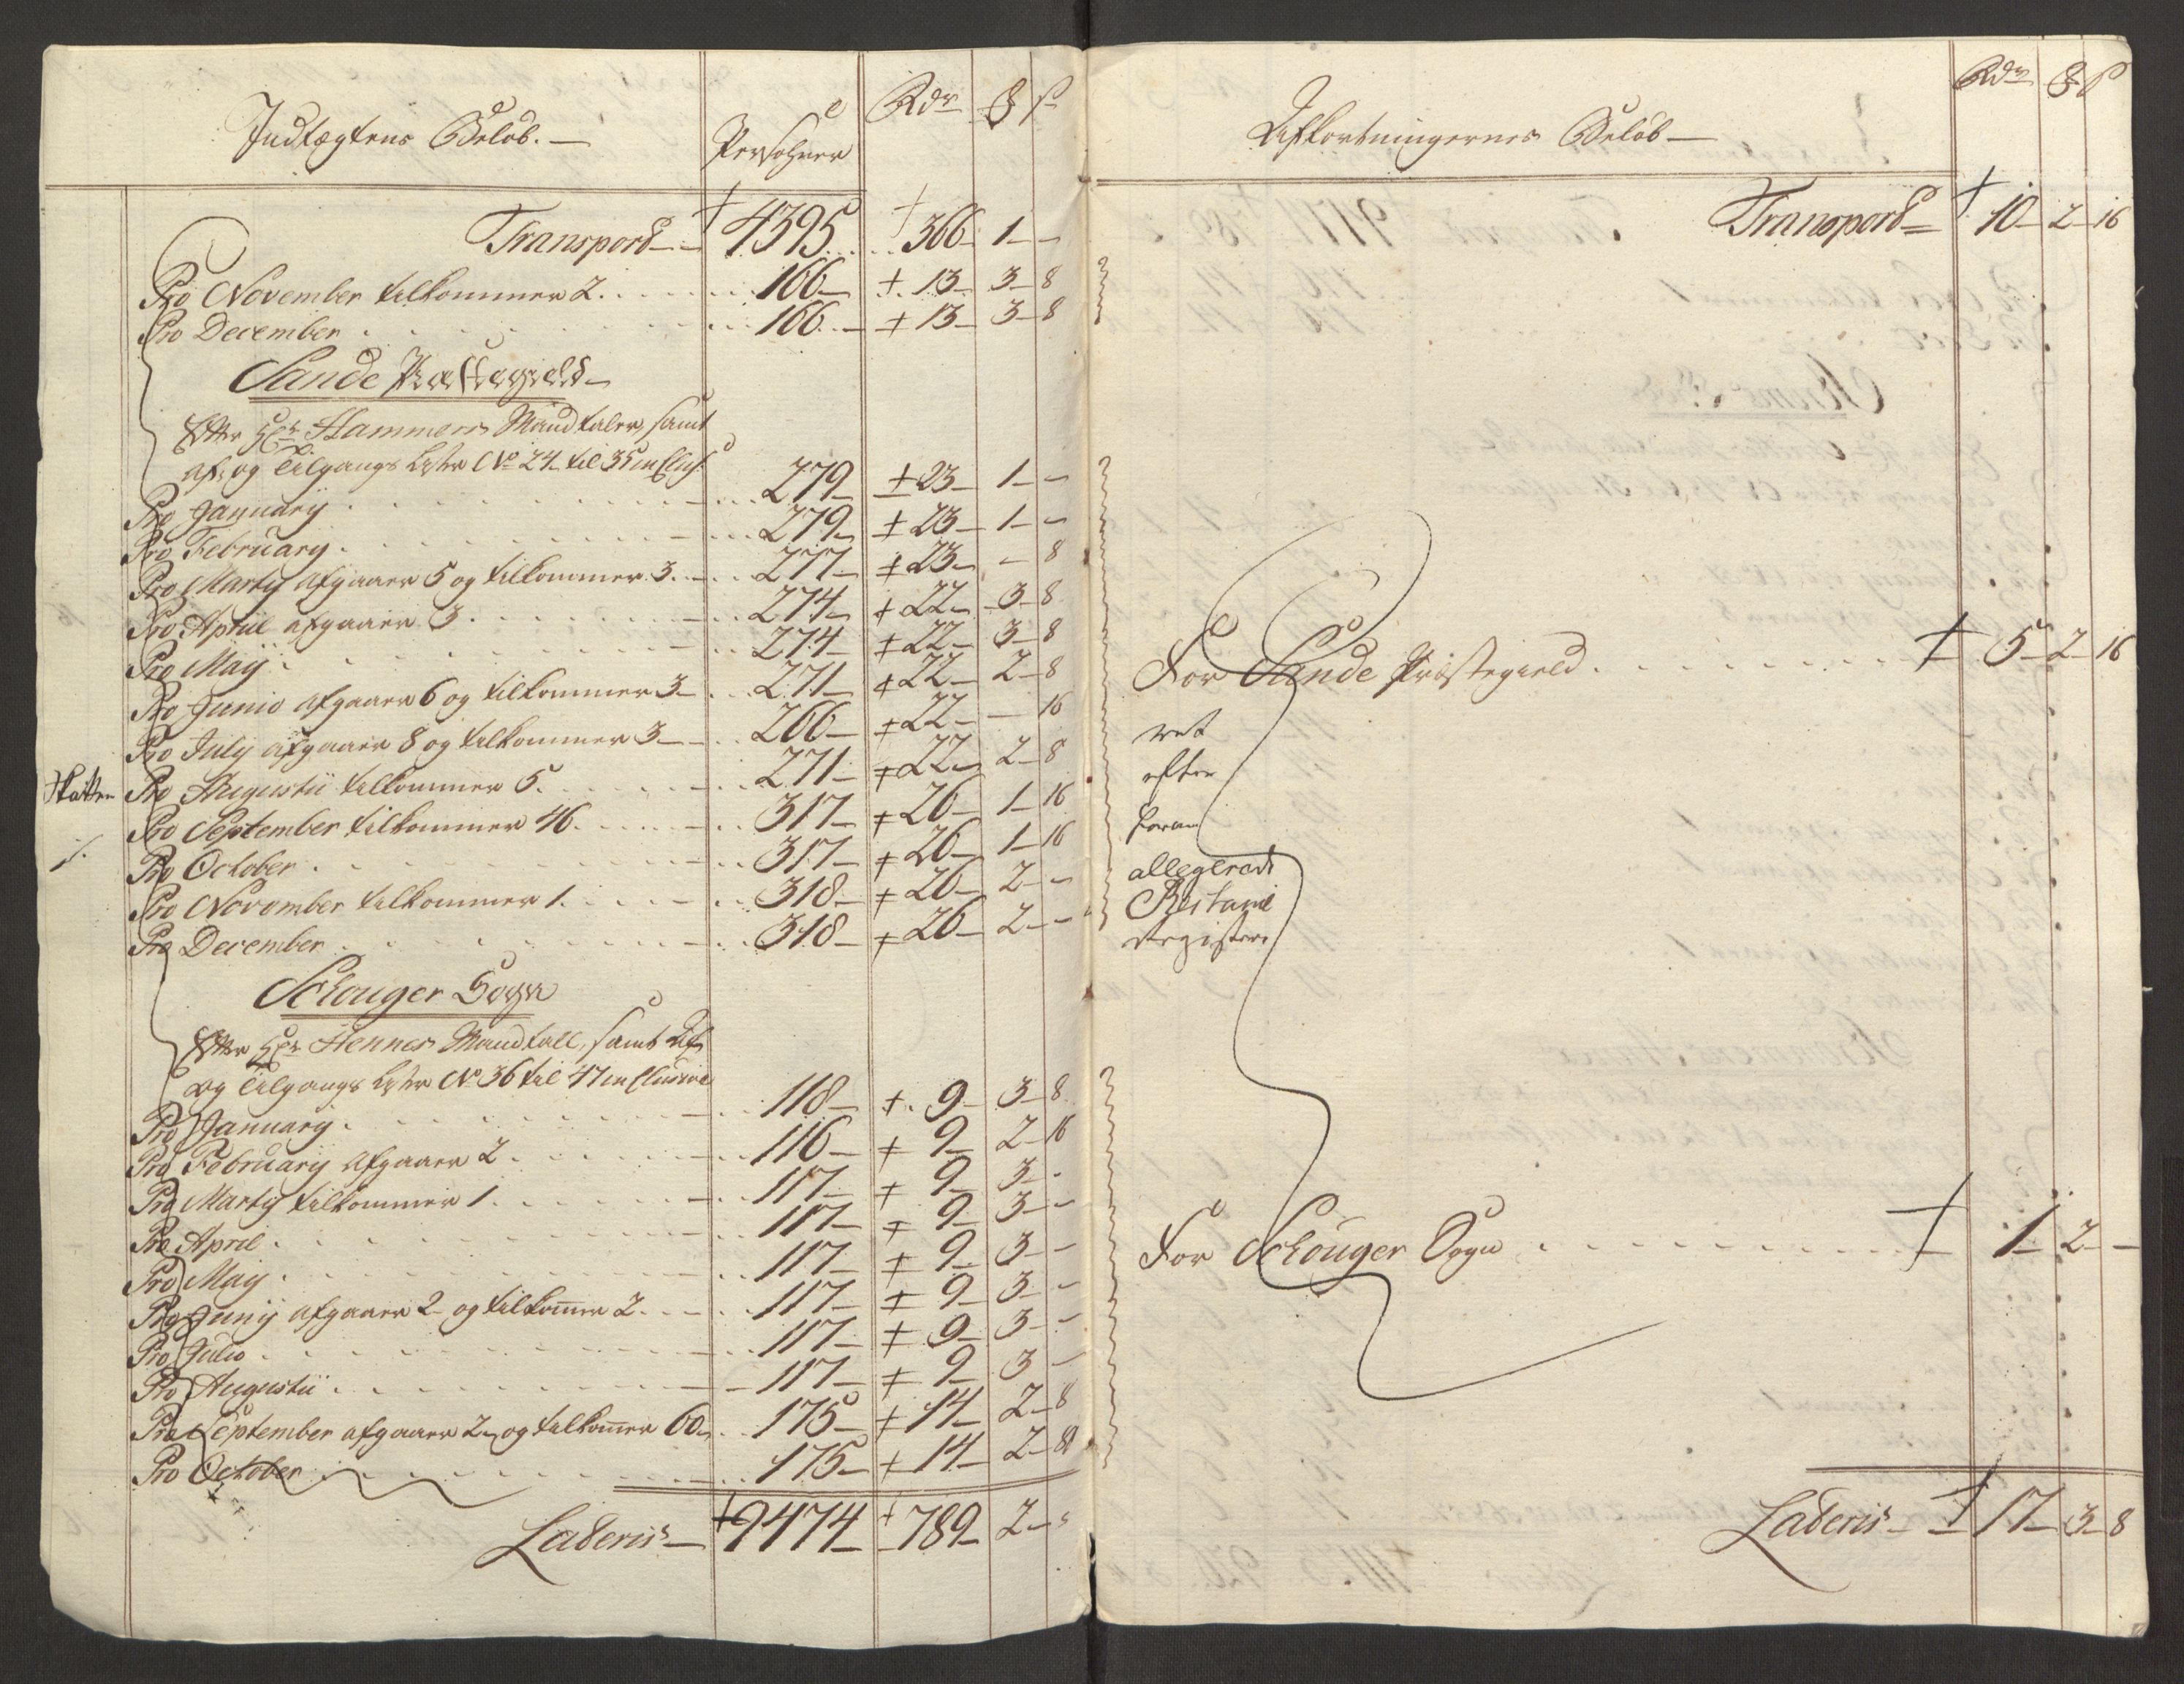 Indtægtens Beløb. —
Persohner
Rdr ß
Transpord — 4395 366 1 —
Pro November tilkommer 2. 166 13 3 8
Pro December 166 13 3 8
Sande Præstegield
Efter Hr Hammers Mandtaler, samt
af- og Tilgangs Lister No 24 til 35 inclus:
Pro January 279 23 1 —
Pro February 279 23 1 —
Pro Marty afgaaer 5 og tilkommer 3 277 23 — 8
Pro April afgaaer 3 274 22 3 8
Pro Maij 274 22 3 8
Pro Junio afgaaer 6 og tilkommer 3 271 22 2 8
Pro July afgaaer 8 og tilkommer 3 266 22 — 16
Skatten Pro Augustii tilkommer 5 271 22 2 8
Pro September tilkommer 46 317 26 1 16
Pro October 317 26 1 16
Pro November tilkommer 1 318 26 2 —
Pro December 318 26 2 —
Schouger Sogn
Efter Hr Hennes Mandtall, samt Af
og Tilgangs Lister No 36 til 47 inclusive
Pro January 118 9 3 8
Pro February afgaaer 2 116 9 2 16
Pro Marty tilkommer 1 117 9 3 —
Pro April 117 9 3 —
Pro Maij 117 9 3 —
Pro Junij afgaaer 2 og tilkommer 2 117 9 3 —
Pro Julio 117 9 3 —
Pro Augustii 117 9 3 —
Pro September afgaaer 2 og tilkommer 60 175 14 2 8
Pro October 175 14 2 8
Lateris — 9474 789 2 —
Afkortningernes Beløb —
Rdr ß
Transpord 10 2 16
For Sande Præstegield 5 2 16
ved
efter
foran
allegerede
Restance
Register
For Schouger Sogn 1 2 —
Lateris — 17 3 8